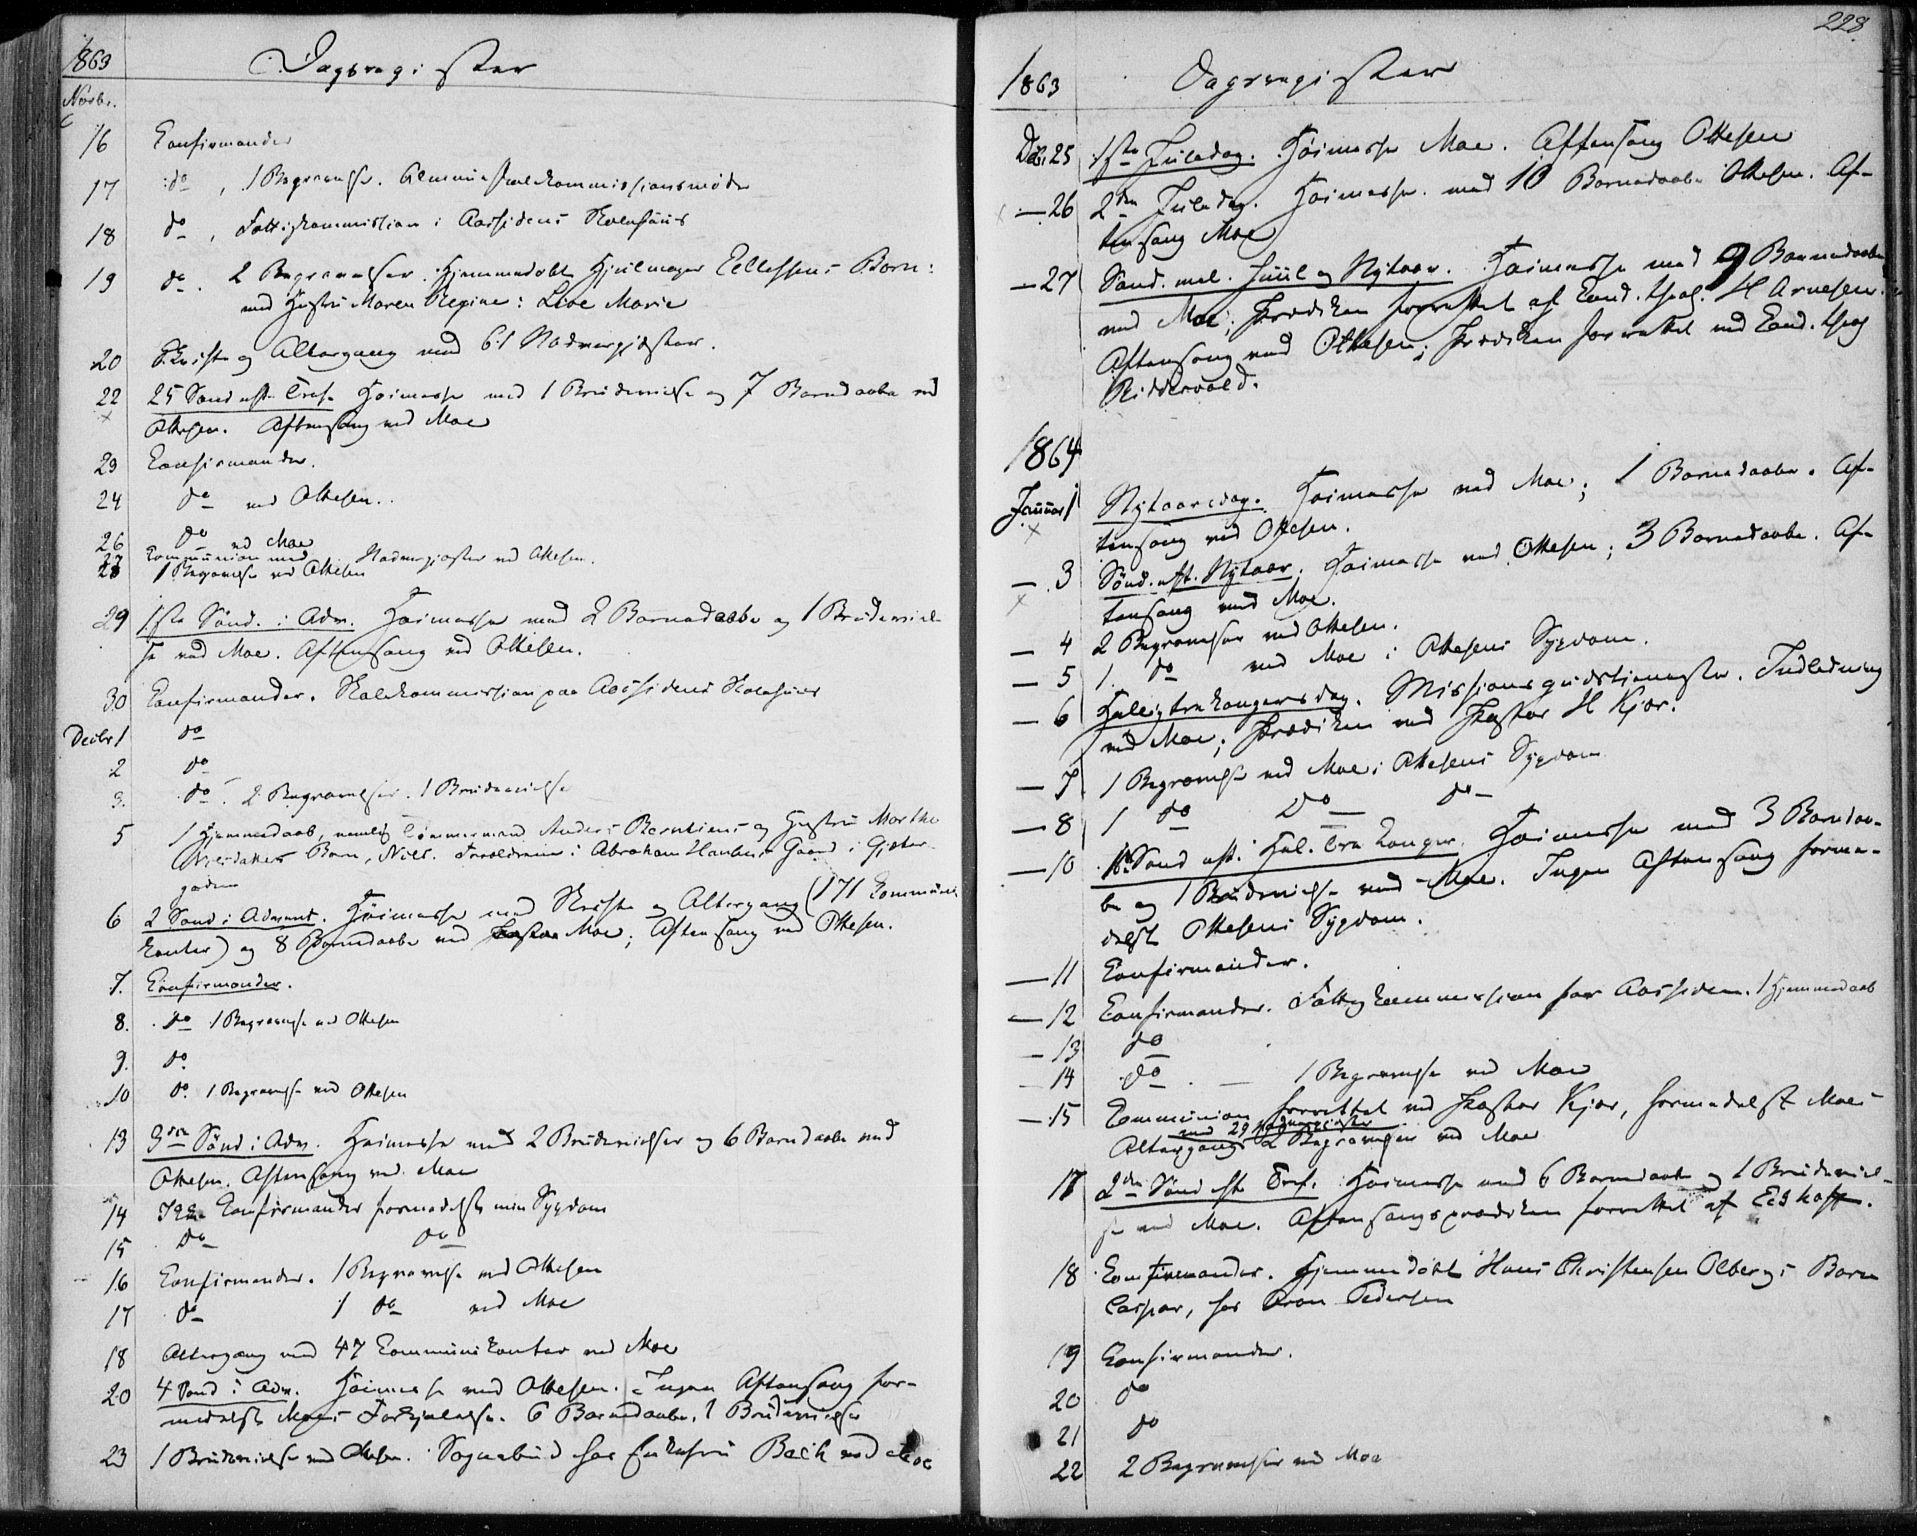 1863 Dagsregister
Novbr.
16 Confirmander
17 do, 1 Begravelse. Almueskolekommissionsmøde
18 do, Fattigkommission i Aarsidens Skolehuus
19 do. 2 Begravelser. Hjemmedøbt Hjulmager Ellefsens Barn:
med Hustru Maren Regine: Live Marie
20 Skrifte og Altergang med 61 Nadvergjæster.
22 25 Sønd. eft. Tref. Høimesse med 1 Brudevielse og 7 Barnedaabe ved
Ottesen. Aftensang ved Moe
23 Confirmander.
24 do ved Ottesen.
26 do ved Moe
27 Communion med Nadvergjæster ved Ottesen.
28 1 Begravelse ved Ottesen
29 1ste Sønd. i Adv. Høimesse med 2 Barnedaabe og 1 Brudeviel-
se ved Moe. Aftensang ved Ottesen.
30 Confirmander. Skolekommission paa Aarsidens Skolehuus
Decbr 1 do
2 do
3. do. 2 Begravelser. 1 Brudevielse
5 1 Hjemmedaab, nemlig Tømmermand Anders Berntsens og Hustru Marthe
Barn, Nils. Forældrene i Abraham Gaard i Gjeter-
gaden
6 2 Sønd. i Advent. Høimesse med Skrifte og Altergang (171 Communi-
kanter) og 8 Barnedaabe ved Moe; Aftensang ved Ottesen.
7. Confirmander.
8. do 1 Begravelse ved Ottesen
9. do.
10 do. 1 Begravelse ved Ottesen
13 3die Sønd. i Adv. Høimesse med 2 Brudevielser og 6 Barnedaabe ved
Ottesen. Aftensang ved Moe
14 Confirmander formedelst min Sygdom
15 do do
16 Confirmander. 1 Begravelse ved Ottesen
17 do 1 do ved Moe
18 Altergang med 47 Communikanter ved Moe
20 4 Sønd. i Adv. Høimesse ved Ottesen. Ingen Aftensang for-
medelst Moes Forkjølelse. 6 Barnedaabe, 1 Brudevielse
23 1 Brudevielse ved Ottesen. Sognebud hos Enkefru Bech ved Moe
228.
1863 Dagsregister
Dcbr. 25 1ste Juledag. Høimesse Moe. Aftensang Ottesen
— 26 2den Juledag. Høimesse med 10 Barnedaabe Ottesen. Af-
tensang Moe
— 27 Sønd. mel. Juul og Nytaar. Høimesse med 9 Barnedaabe
ved Moe; Prædiken forrettet af Cand. theol. H Arnesen.
Aftensang ved Ottesen; Prædiken forrettet ved Cand. theol
Riddervold.
1864
Januar 1 Nytaarsdag. Høimesse ved Moe; 1 Barnedaabe. Af-
tensang ved Ottesen.
— 3 Sønd. eft. Nytaar. Høimesse ved Ottesen; 3 Barnedaabe. Af-
tensang ved Moe.
— 4 2 Begravelser ved Ottesen.
— 5 1. do ved Moe i Ottesens Sygdom.
— 6 Helligtrekongersdag. Missionsgudstjeneste. Indledning
ved Moe; Prædiken ved Pastor H Kjær.
— 7 1 Begravelse ved Moe i Ottesens Sygdom
— 8 1 do do — do —
— 10 1ste Sønd. eft. Hel. tre Konger. Høimesse med 3 Barnedaa-
be og 1 Brudevielse ved Moe. Ingen Aftensang forme-
delst Ottesens Sygdom.
— 11 Confirmander.
— 12 Confirmander. Fattigkommission for Aarsiden. 1 Hjemmedaab
— 13 do
— 14 do. — 1 Begravelse ved Moe
— 15 Communion forrettet ved Pastor Kjær, formedelst Moes
med 29 Nadvergjæster
Altergang. 2 Begravelser ved Moe
17 2den Sønd. eft. Tref. Høimesse med 6 Barnedaabe og 1 Brudeviel-
se ved Moe. Aftensangsprædiken forrettet af Eckhoff.
18 Confirmander. Hjemmedøbt Hans Christensen Olbergs Barn
Caspar, hos Pedersen
19 Confirmander.
20 do
21 do
22 2 Begravelser ved Moe